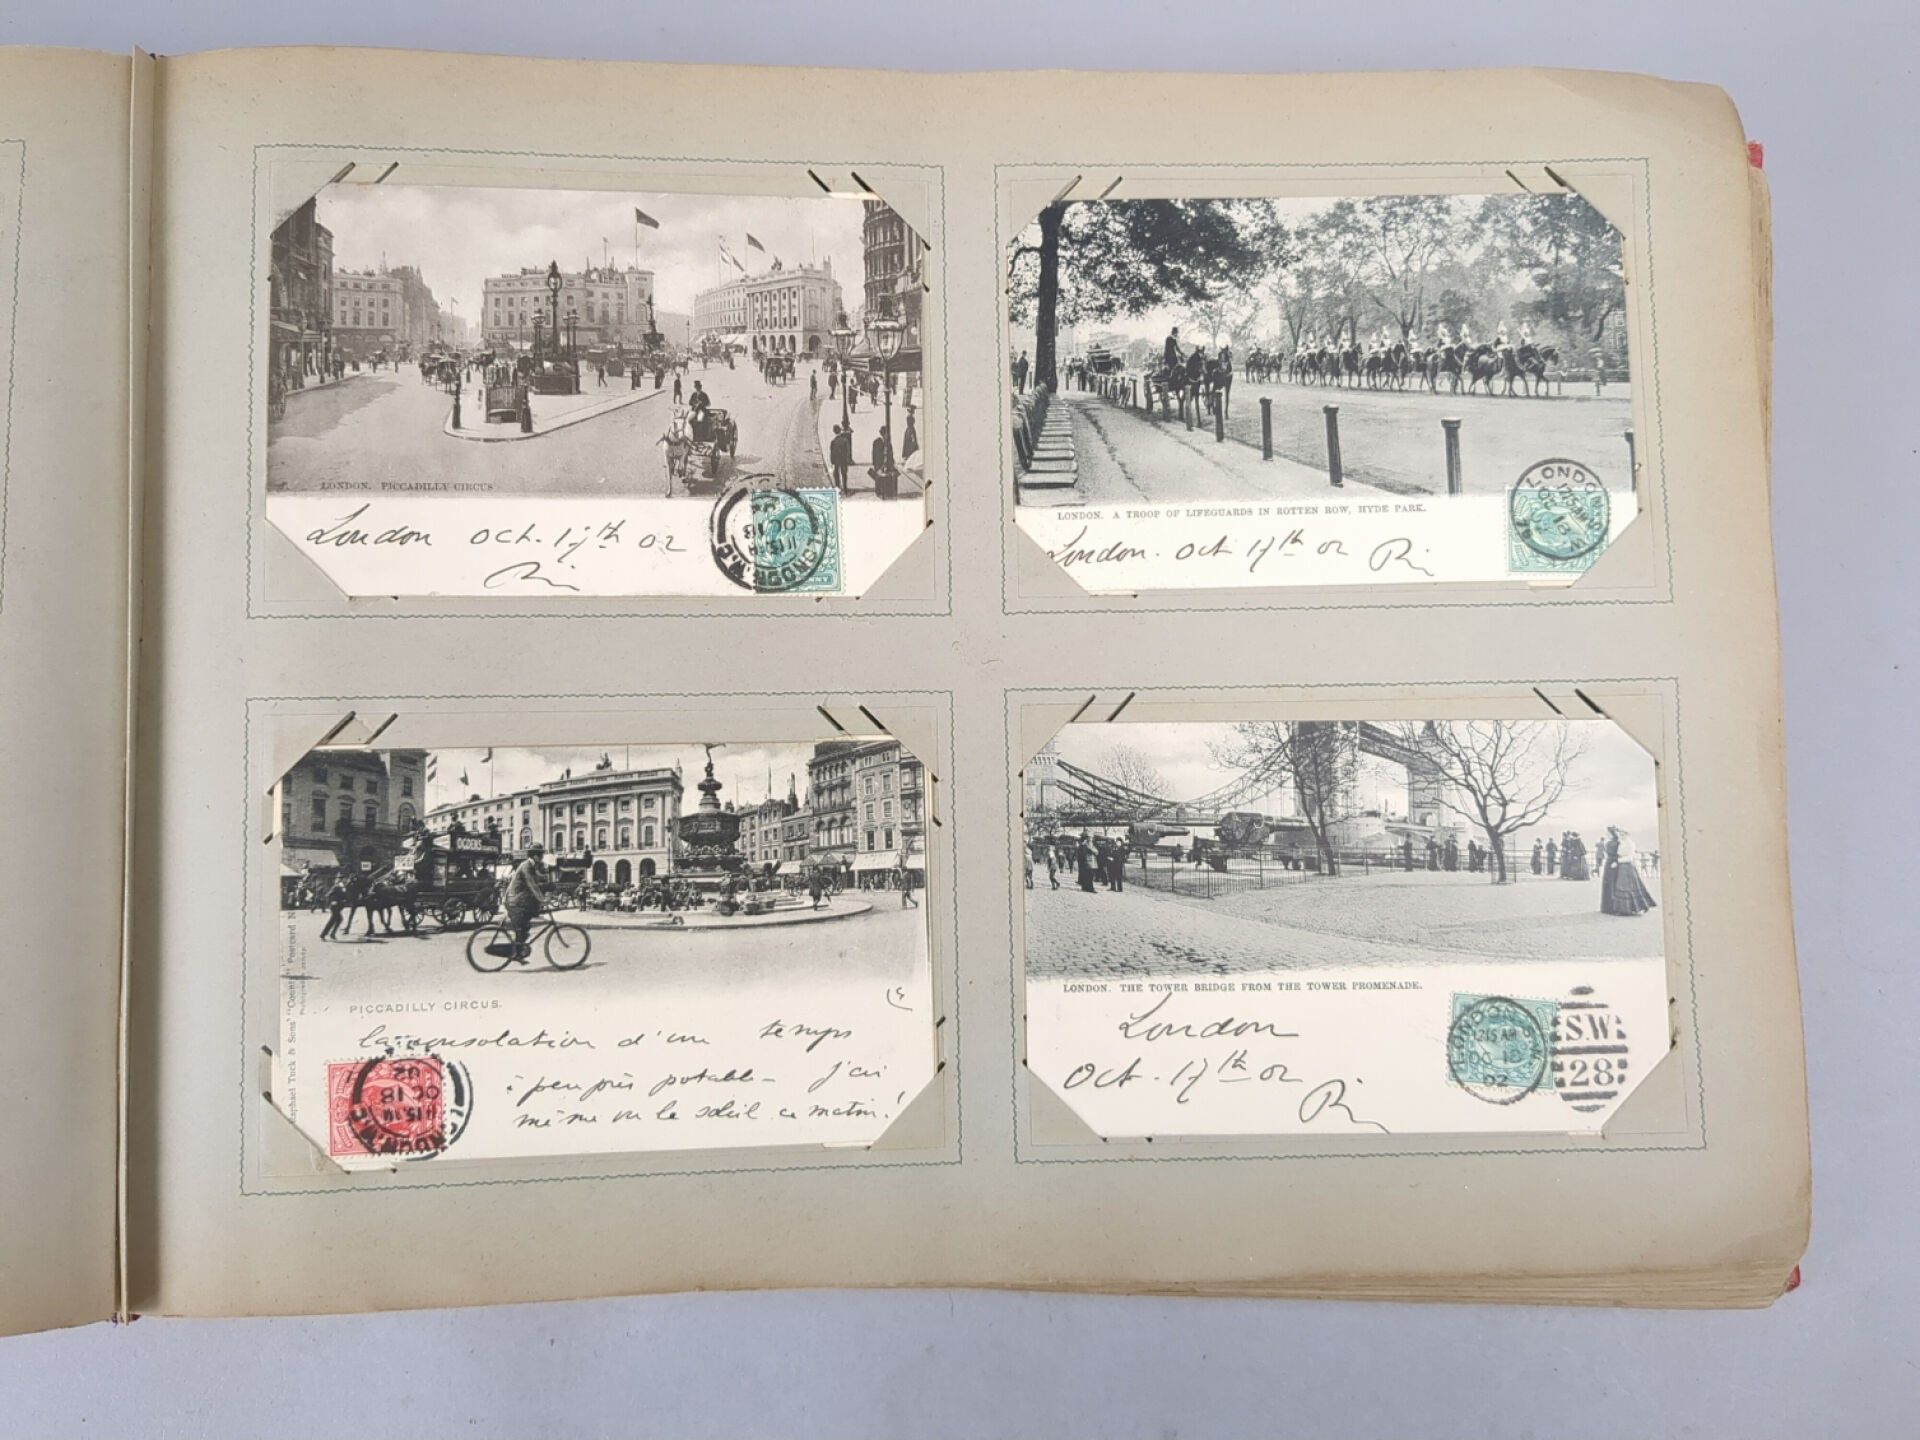 LONDON. PICCADILLY CIRCUS
London Oct. 17th 02
LONDON. W.C
11.15 AM
OC 18
02
LONDON. A TROOP OF LIFEGUARDS IN ROTTEN ROW, HYDE PARK.
London. Oct 17th 02
LONDON S.W
12.15 AM
OC 18
OGDENS
PICCADILLY CIRCUS.
Raphael Tuck & Sons' "County" Postcard N
la consolation d'un temps
à peu près potable – j'ai
même vu le soleil ce matin!
LONDON. W.C
11.15 AM
OC 18
02
LONDON. THE TOWER BRIDGE FROM THE TOWER PROMENADE.
London
Oct. 17th 02
LONDON S.W
12.15 AM
OC 18
02
S.W.
28